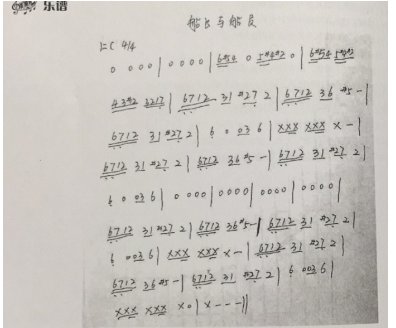 乐谱
船长与船员
1=C 4/4
0 0 0 0 | 0 0 0 0 | 6#54 0 5#4#2 0 | 6#54 5#4#2
43#2 3217 | 6712 31 #27 2 | 6712 36 #5 - |
6712 31 #27 2 | 6 0 03 6 | XXX XXX X - |
6712 31 #27 2 | 6712 36 #5 - | 6712 31 #27 2 |
6 0 03 6 | 0 0 0 0 | 0 0 0 0 | 0 0 0 0 | 0 0 0 0 |
6712 31 #27 2 | 6712 36 #5 - | 6712 31 #27 2 |
6 0 03 6 | XXX XXX X - | 6712 31 #27 2 |
6712 36 #5 - | 6712 31 #27 2 | 6 0 03 6 |
XXX XXX X 0 | X - - - ||